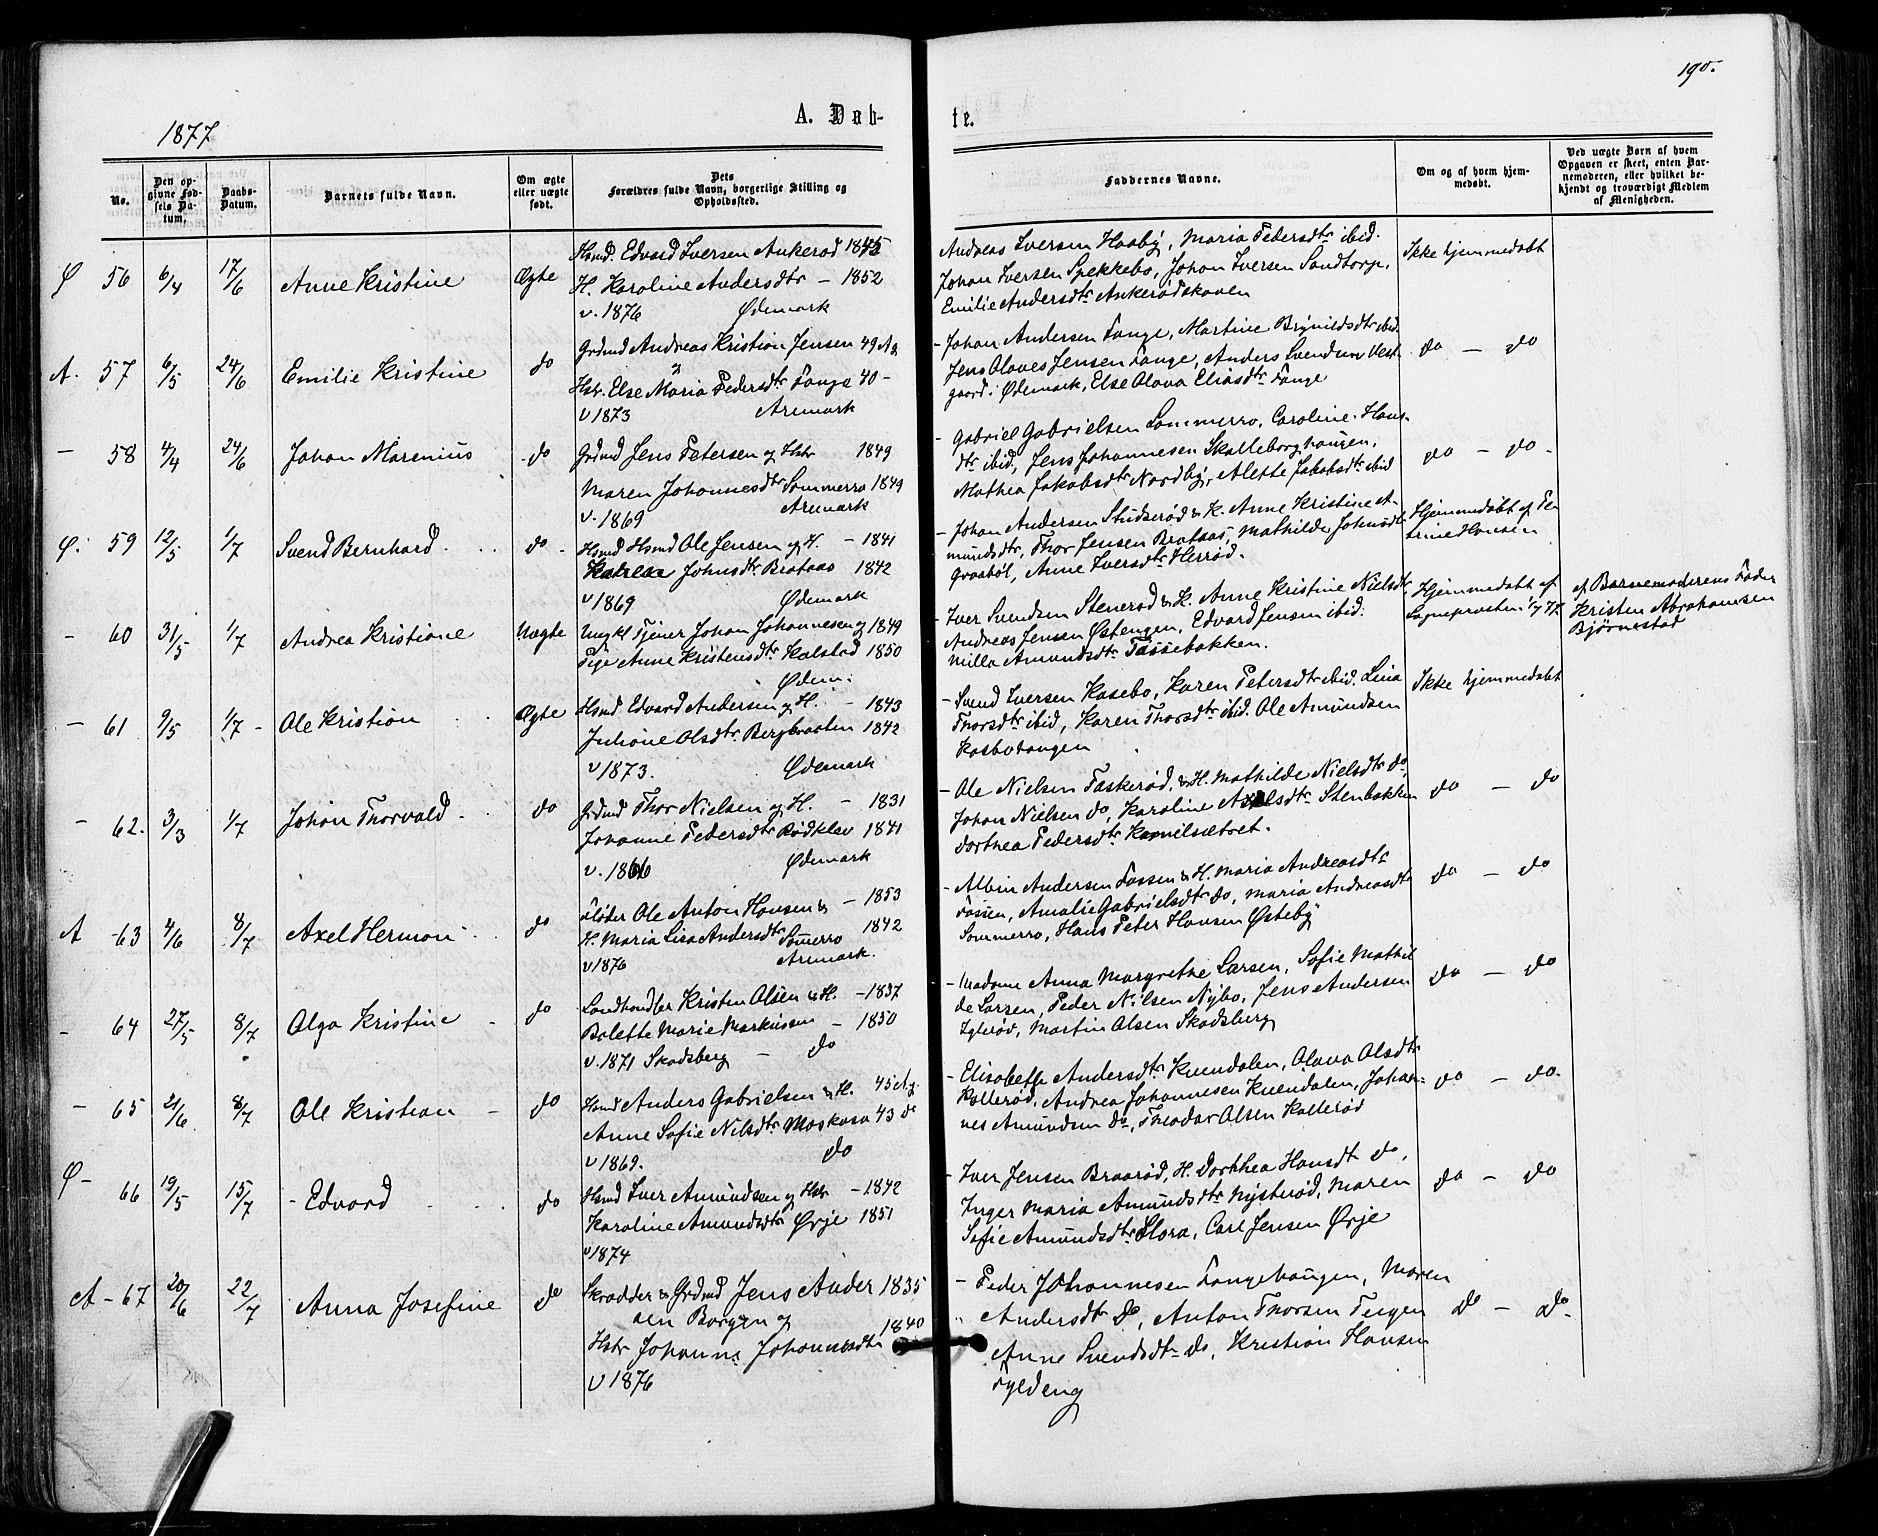 190.
1877
A. Døb-
te.
No.
Den op-
givne Fød-
sels Da-
tum.
Daabs-
Datum.
Barnets fulde Navn.
Om ægte
eller uægte
født.
Dets
Forældres fulde Navn, borgerlige Stilling og
Opholdssted.
Faddernes Navne.
Om og af hvem hjem-
medøbt.
Ved uægte Børn af hvem
Opgaven er skeet, enten Bar-
nemoderen, eller hvilket be-
kjendt og troværdigt Medlem
af Menigheden.
Ø 56 6/4 17/6 Anne Kristine Ægte
Hsmd. Edvard Iversen Ankerød 1845
H. Karoline Andersdtr – 1852
v. 1876 Ødemark
Andreas Iversen Haaby, Maria Pedersdtr ibid.
Johan Iversen Spekkebo, Johan Iversen Sandtorp,
Emilie Andersdtr Ankerødskoven
Ikke hjemmedøbt
A. 57 6/5 24/6 Emilie Kristine do
Grdmd Andreas Kristian Jensen 49 Ag
Hstr. Else Maria Pedersdtr Fange 40 –
v 1873 Aremark
- Johan Andersen Fange, Martine Brynildsdtr ibid.
Jens Olaves Jensen Fange, Anders Svendsen Vest-
gaard i Ødemark, Else Olava Eliasdtr Fange
do – do
– 58 4/4 24/6 Johan Marenius do
Grdmd Jens Petersen og Hstr 1849
Maren Johannesdtr Sommerro 1849
v. 1869 Aremark
- Gabriel Gabrielsen Sommerro, Caroline Hans-
dtr ibid, Jens Johannesen Skolleborghaugen,
Mathea Jakobsdtr Nordby, Alette Jakobsdtr ibid
do – do -
Ø. 59 12/5 1/7 Svend Bernhard . do -
Hsmd Hsmd Ole Jensen og H. – 1841
Johnsdtr Brataas 1842
v 1869 Ødemark
- Johan Andersen Studserød & K. Anne Kristine A-
mundsdtr, Thor Jensen Brataas, Mathilde Johnsdtr
Graabøl, Anne Iversdtr Herrød.
Hjemmedøbt af Pe-
trine Hansen
– 60 31/5 1/7 Andrea Kristiane Uægte
Ungkl Tjener Johan Johannesen og 1849
Pige Anne Kristensdtr Kalstad 1850
Ødem.
- Iver Svendsen Stenerød & K. Anne Kristine Nielsdtr,
Andreas Jensen Østengen, Edvard Jensen ibid.
Milla Amundsdtr Tassebakken.
Hjemmedøbt af
Sogneprosten 1/7 77.
af Barnemoderens Fader
Kristen Abrahamsen
Bjørnestad
– 61 9/5 1/7 - Ole Kristian Ægte
Hsmd Edvard Andersen og H. – 1843
Juliane Olsdtr. Bergbraaten 1842
v 1873. Ødemark
- Svend Iversen Kasebo, Karen Petersdtr ibid. Lina
Thorsdtr ibid, Karen Thorsdtr ibid. Ole Amundsen
Kasbotangen
Ikke hjemmedøbt
– 62. 3/3 1/7 Johan Thorvald . do
Grdmd Thor Nielsen og H. – 1831
Johanne Pedersdtr Rødklev 1841
v. 1866 Ødemark
- Ole Nielsen Taskerød, & H. Mathilde Nielsdtr do,
Johan Nielsen do, Karoline Axelsdtr Stenbakken
Dorthea Pedersdtr Kamilsætret.
do – do
A - 63 4/6 8/7 Axel Herman . do
Fløder Ole Anton Hansen & – 1853
H. Maria Lisa Andersdtr Somerro 1842
v 1876 Aremark.
- Albin Andersen Fossen & H. Maria Andreasdtr
Fossen, Amalie Gabrielsdtr do, Maria Andreasdtr
Sommerro, Hans Peter Hansen Østeby
do – do
– 64 27/5 8/7 Olga Kristine do
Landhandler Kristen Olsen & H. – 1837
Bolette Marie Markussen – 1850
v. 1871 Skodsberg – do
- Madame Anna Margrethe Larsen, Sofie Mathil-
de Larsen, Peder Nilsen Nybo, Jens Andersen
Iglerød, Martin Olsen Skodsberg
do – do
– 65 21/6 8/7 Ole Kristian – do
Hsmd Anders Gabrielsen & H. 45 Ag.
Anne Sofie Nilsdtr Moskasa 43 do
v 1869. do
- Elisabeth Andersdtr Kuendalen, Olava Olsdtr
Kollerød, Andrea Johannesen Kuendalen, Johan-
nes Amundsen do, Theodor Olsen Kollerød
do – do.
Ø - 66 19/5 15/7 - Edvard do
Hsmd Iver Amundsen og Hstr – 1842
Karoline Amundsdtr Ørje 1851
v 1874
- Iver Jensen Braarød, H. Dorthea Hansdtr do,
Inger Maria Amundsdtr Nysterød, Maren
Sofie Amundsdtr Slora, Carl Jensen Ørje
do – do
A - 67 20/6 22/7 Anna Josefine do
Skrædder & Grdmd Jens Ander 1835
sen Borgen og
Hstr Johanne Johannesdtr 1840
v 1876
- Peder Johannesen Fangehaugen, Maren
Andersdtr do, Anton Thorsen Tergen
Anne Svendsdtr do, Kristian Hansen
Fyldeng
do – do -